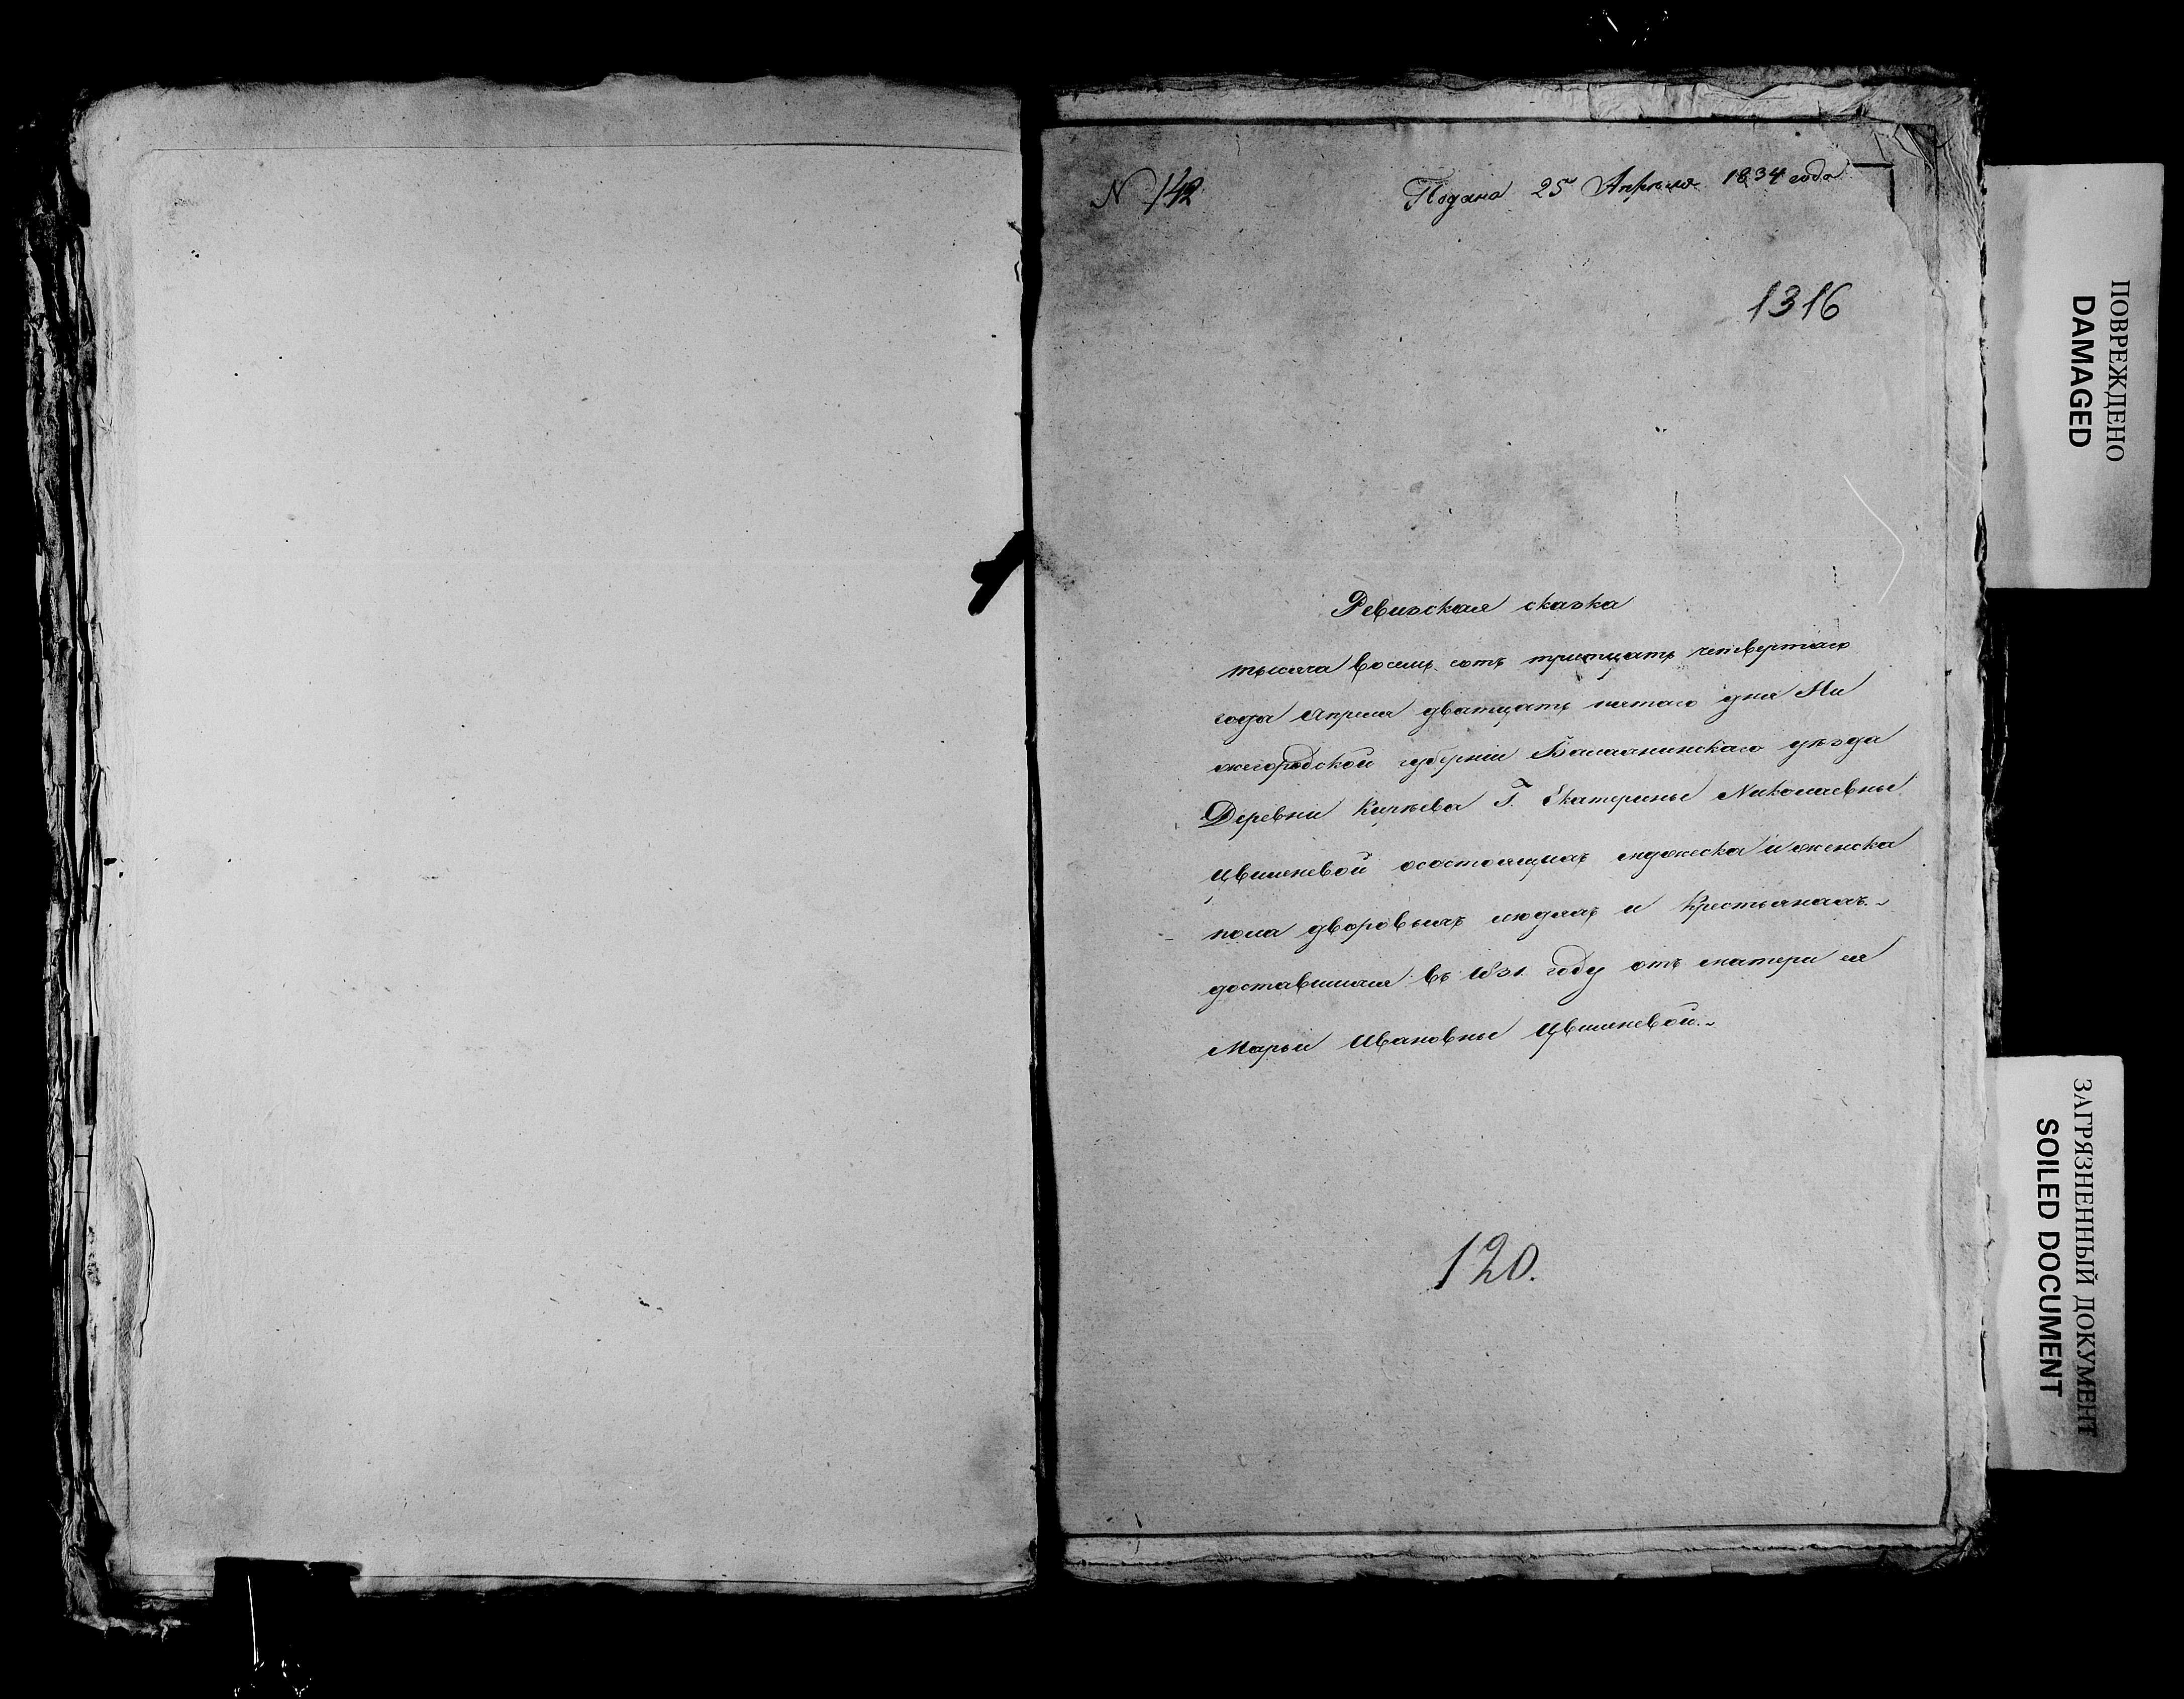 N 142
Подана 25 Апреля 1834 года
1316
Ревизская сказка
тысяча восемь сотъ тритцать четвертаго
года Апреля дватцать пятаго дня Ни
жегородской губерніи Балахнинскаго уѣзда
Деревни Киреева Г. Екатерины Николаевны
осостоящихъ мужеска и женска
пола дворовыхъ людяхъ и Крестьянахъ.~
доставшихся въ 1831. году отъ матери ея
Марьи Ивановны
120.
ПОВРЕЖДЕНО
DAMAGED
ЗАГРЯЗНЕННЫЙ ДОКУМЕНТ
SOILED DOCUMENT